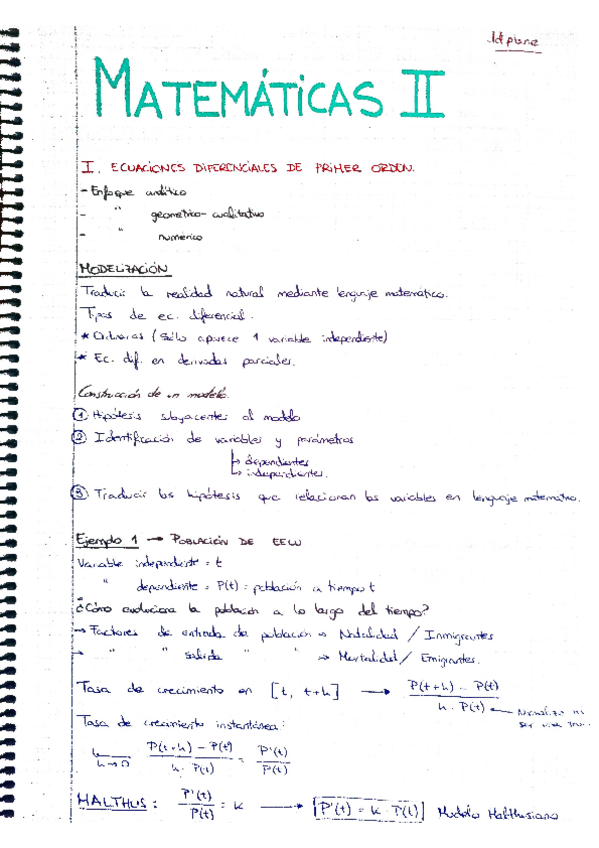 MATEMÁTICAS II
I. ECUACIONES DIFERENCIALES DE PRIMER ORDEN.
- Enfoque analítico
- " geométrico-cualitativo
- " numérico
MODELIZACIÓN
Traducir la realidad natural mediante lenguaje matemático.
Tipos de ec. diferencial.
* Ordinarias (Sólo aparece 1 variable independiente)
* Ec. dif. en derivadas parciales.
Construcción de un modelo.
① Hipótesis subyacentes al modelo
② Identificación de variables y parámetros
↳ dependientes
↳ independientes.
③ Traducir las hipótesis que relacionan las variables en lenguaje matemático.
Ejemplo 1 → POBLACIÓN DE EEUU
Variable independiente = t
" dependiente = P(t) = población a tiempo t
¿Cómo evoluciona la población a lo largo del tiempo?
→ Factores de entrada de población → Natalidad / Inmigrantes
→ " " salida " → Mortalidad / Emigrantes.
Tasa de crecimiento en [t, t+h] → P(t+h) - P(t) / h · P(t) ←
Tasa de crecimiento instantánea:
h→0 P(t+h) - P(t) / h · P(t) = P'(t) / P(t)
MALTHUS: P'(t) / P(t) = k → P'(t) = k · P(t) Modelo Malthusiano